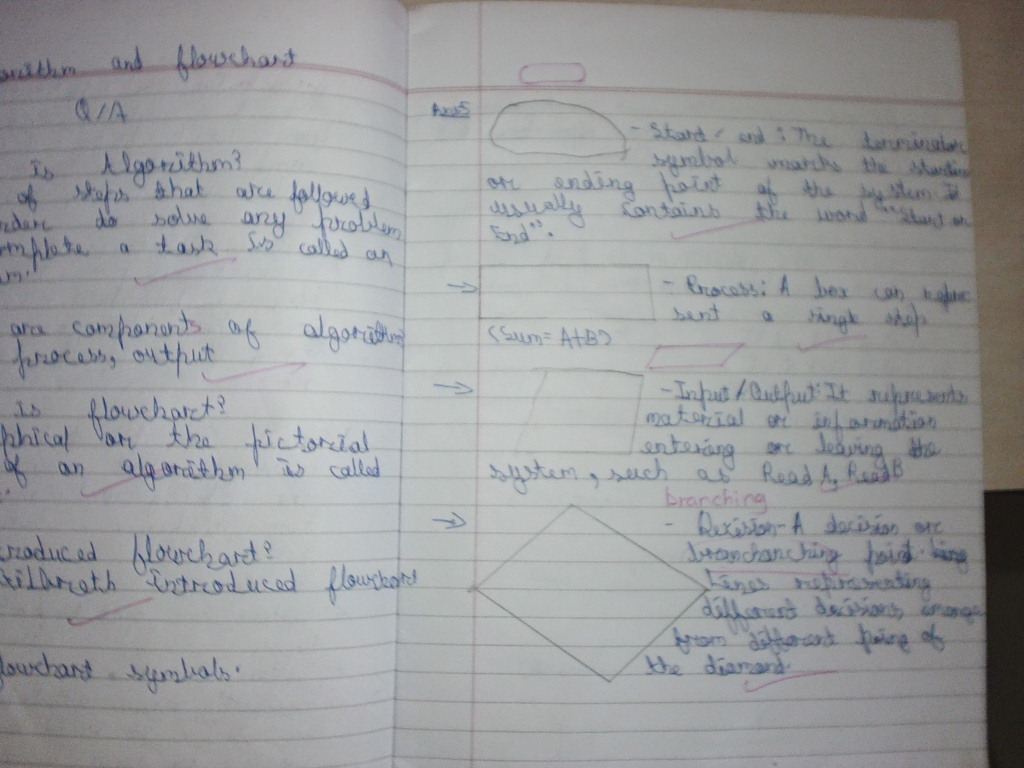 orithm and flowchart
Q/A
is Algorithm?
of steps that are followed
order do solve any problem
omplete a task is called an
m.
are components of algorithm
process, output
is flowchart?
phical or the pictorial
of an algorithm is called
troduced flowchart?
introduced flowchart
lowchart symbols.
Ans5
- Start / end : The terminator
symbol marks the starting
or ending point of the system. It
usually contains the word "Start or
End".
→ - Process: A box can repre
sent a single step
(Sum = A+B)
→ - Input / Output: It represents
material or information
entering or leaving the
system, such as Read A, Read B
branching
→ - Decision - A decision or
branchanching point.
Lines representing
different decisions
from different of
the diamond.